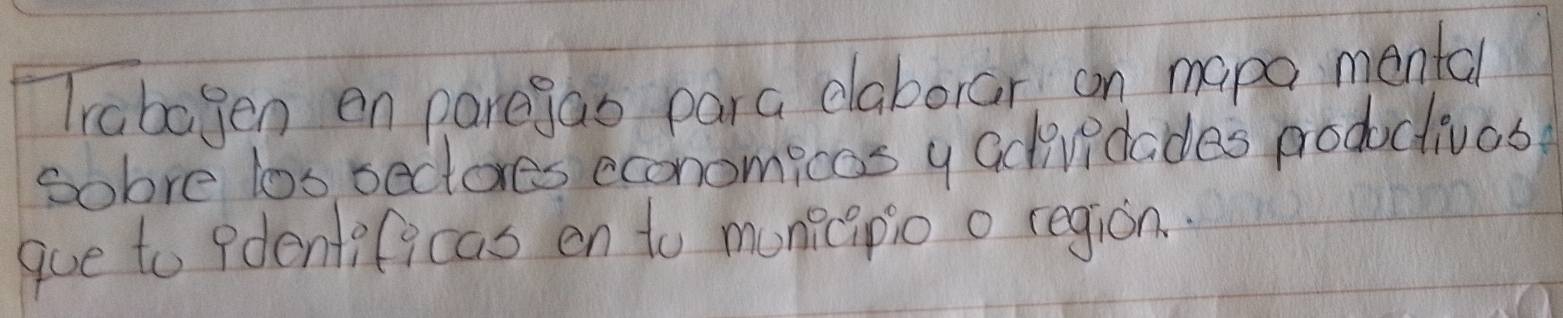 Trabajen en parejas para elaborar un mapa mental
sobre los sectores economicos y actividades productivas
que tu identificas en tu municipio o región.